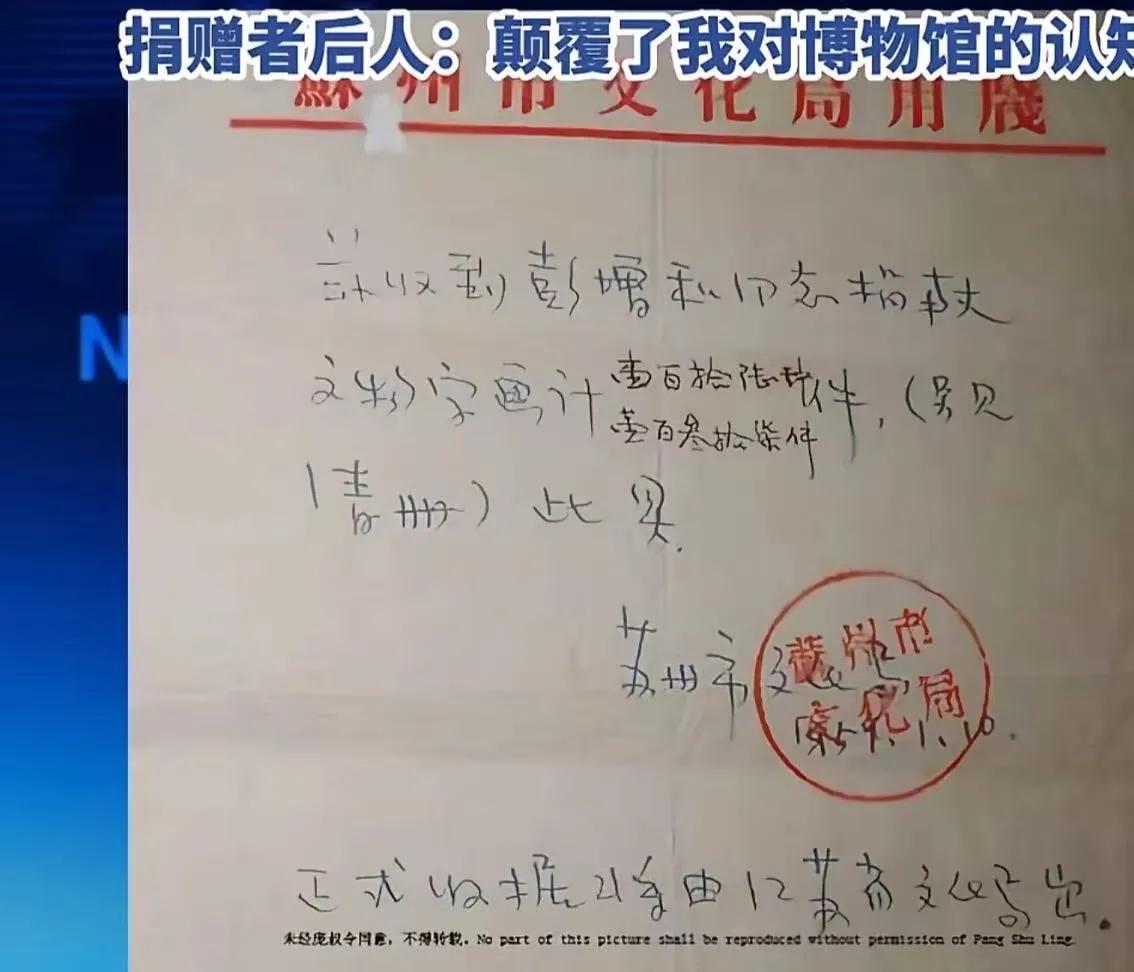 捐赠者后人：颠覆了我对博物馆的认知
蘇州市文化局用牋
兹收到彭增和同志捐献
文物字画计壹百拾陆种件，（另见
壹百叁拾柒件
清册）此具.
苏州市文化局
蘇州市
文化局
1959.1.10.
正式收据将由江苏省文化局出。
未经庞叔令同意，不得转载。No part of this picture shall be reproduced without permission of Pang Shu Ling.